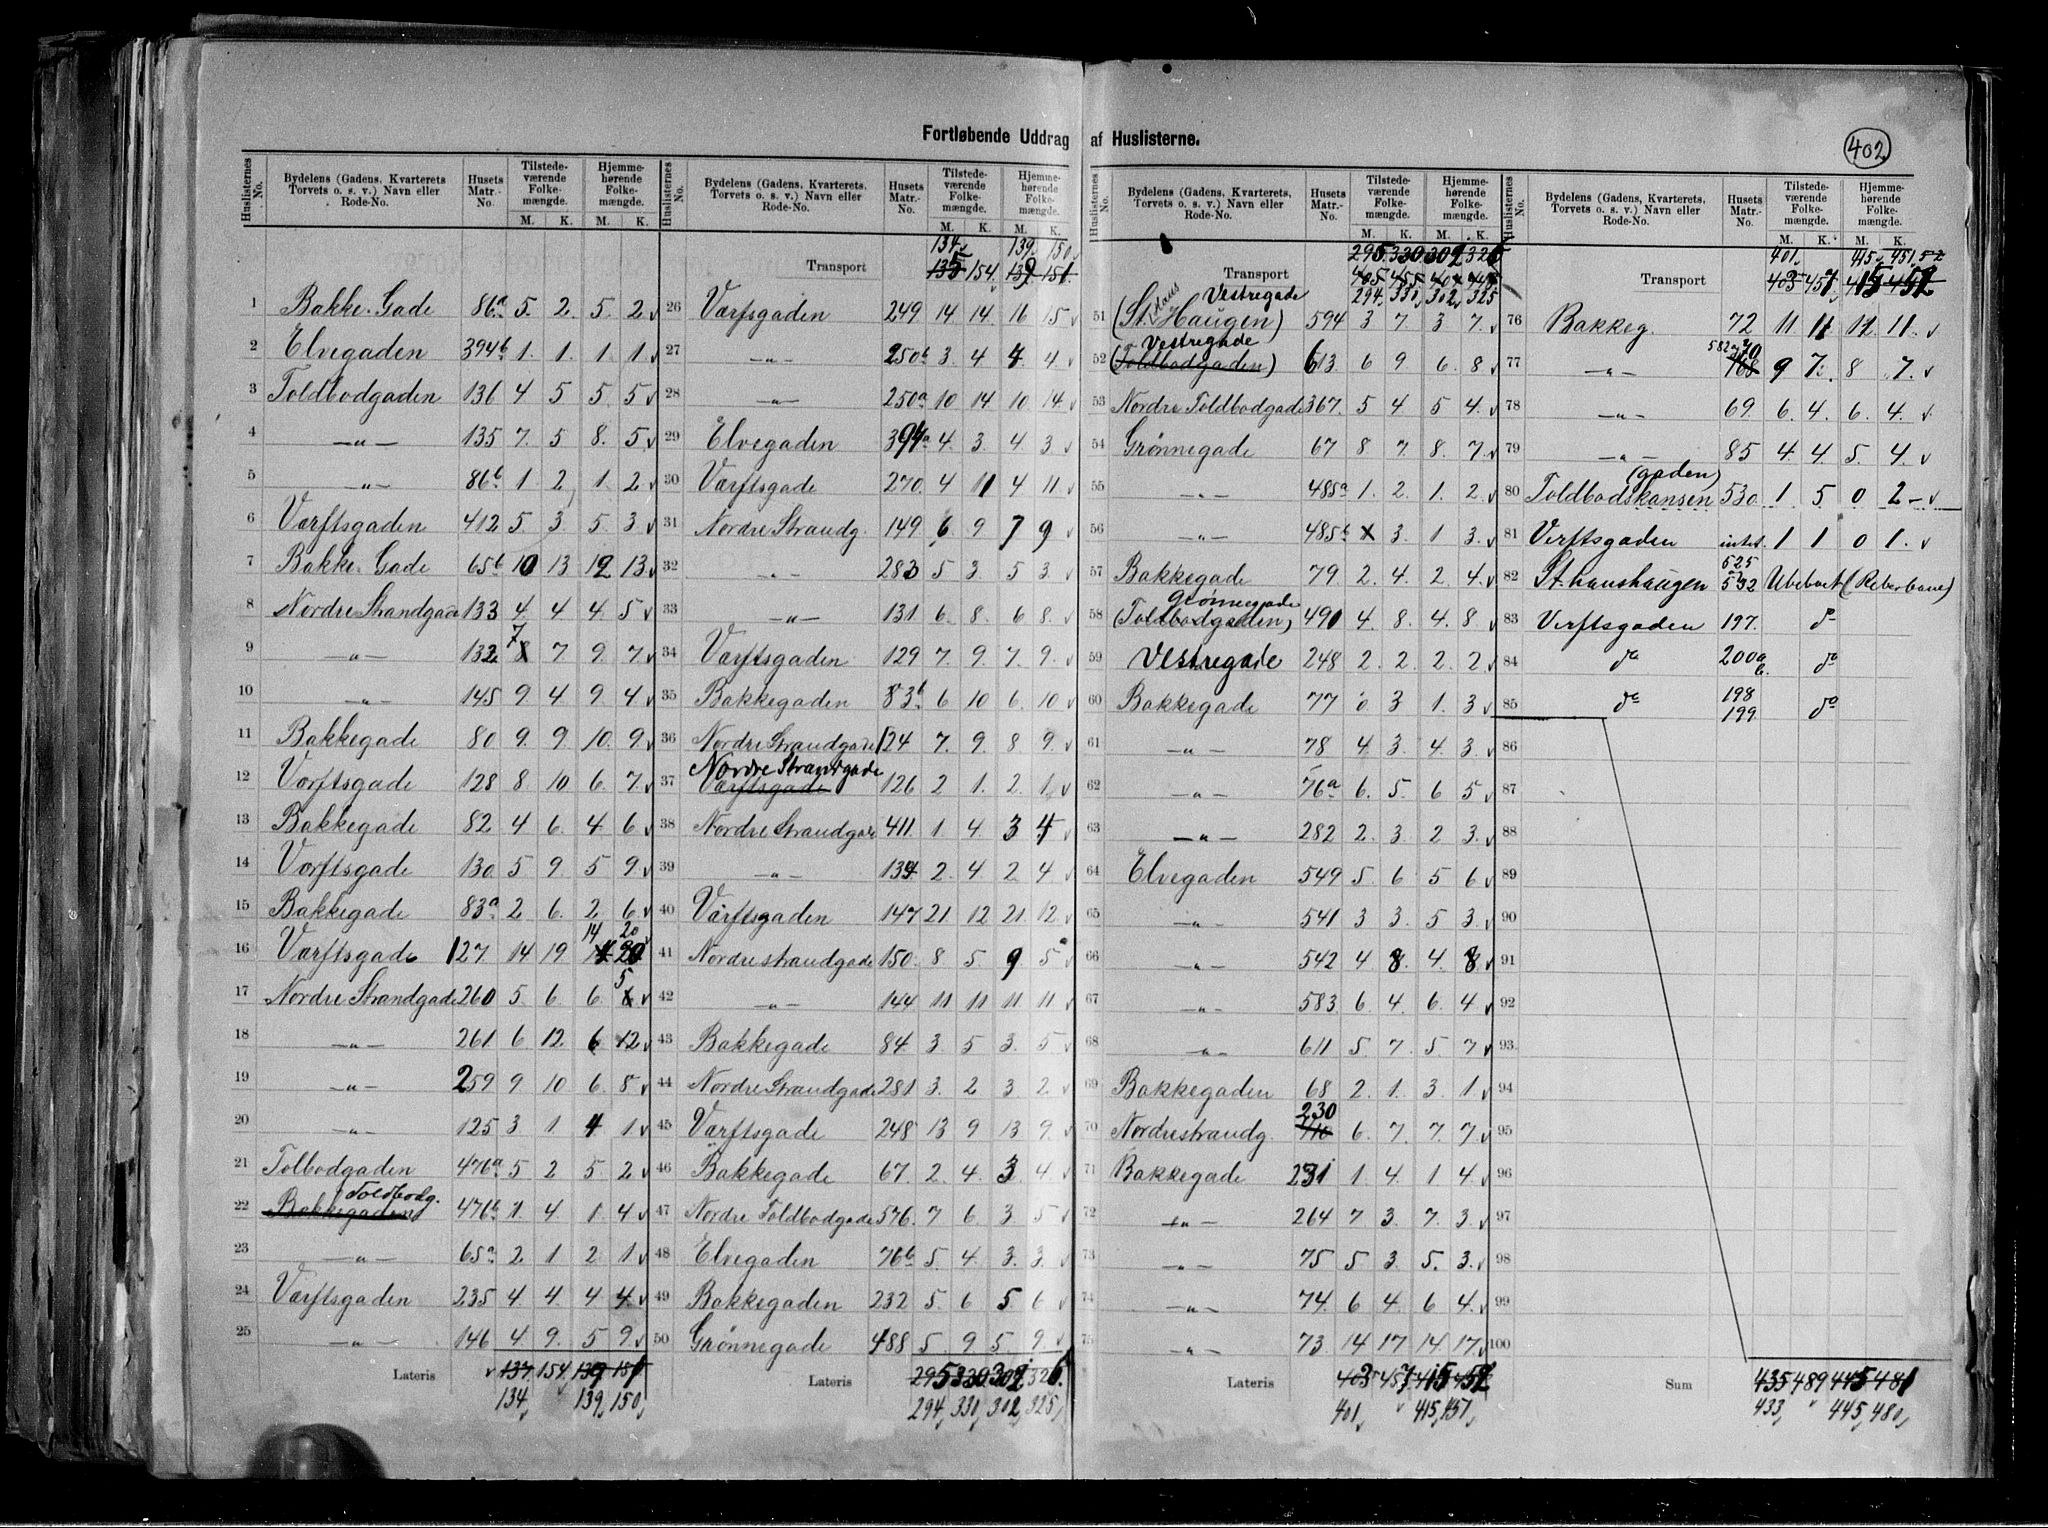 Fortløbende Uddrag af Huslisterne.
402
Huslisternes No. Bydelens (Gadens, Kvarterets, Torvets o. s. v.) Navn eller Rode-No. Husets Matr.-No. Tilstedeværende Folkemængde. M. K. Hjemmehørende Folkemængde. M. K.
1 Bakke Gade 86a 5. 2. 5. 2 v
2 Elvegaden 394b 1. 1. 1 1 v
3 Toldbodgaden 136 4 5 5. 5 v
4 —„— 135 7. 5 8. 5 v
5 —„— 86b 1 2 1. 2 v
6 Værftsgaden 412 5. 3. 5. 3 v
7 Bakke Gade 65b 10 13 12 13 v
8 Nordre Strandgade 133 4 4 4. 5 v
9 —„— 132 7 7. 9. 7 v
10 —„— 145 9 4 9. 4 v
11 Bakkegade 80 9. 9. 10. 9 v
12 Værftsgade 128 8 10 6. 7. v
13 Bakkegade 82 4 6. 4. 6 v
14 Værftsgade 130 5 9. 5 9. v
15 Bakkegade 83a 2 6. 2 6 v
16 Værftsgade 127 14 19 14 20 v
17 Nordre Strandgade 260 5 6. 6 5 v
18 —„— 261 6 12. 6 12 v
19 —„— 259 9 10 6. 8 v
20 —„— 125 3 1 4 1 v
21 Tolbodgaden 476a 5 2 5. 2 v
22 Bakkegaden Toldbodg. 476b 1. 4 1. 4 v
23 —„— 65a 2 1 2 1 v
24 Værftsgaden 235 4. 4. 4 4 v
25 —„— 146 4 9. 5 9. v
Lateris 137 154 139 151
134 139 150
Huslisternes No. Bydelens (Gadens, Kvarterets, Torvets o. s. v.) Navn eller Rode-No. Husets Matr.-No. Tilstedeværende Folkemængde. M. K. Hjemmehørende Folkemængde. M. K.
134 139 150
Transport 135 154 139 151
26 Værfsgaden 249 14 14 16 15 v
27 —„— 250b 3 4 4. 4. v
28 —„— 250a 10 14 10 14. v
29 Elvegaden 394a 4 3 4 3 v
30 Værftsgade 270. 4 11 4 11. v
31 Nordre Strandg. 149 6 9 7 9 v
32 —„— 283 5 3. 5 3. v
33 —„— 131 6. 8. 6 8. v
34 Værftsgaden 129 7. 9. 7. 9. v
35 Bakkegaden 83b 6 10 6. 10 v
36 Nordre Strandgade 124 7. 9 8 9. v
37 Nordre Strandgade Værftsgade 126 2 1. 2. 1. v
38 Nordre Strandgade 411 1 4. 3 4 v
39 —„— 134 2 4 2 4 v
40 Värftsgaden 147 21 12 21 12 v
41 Nordrestrandgade 150. 8 5 9 5 v
42 —„— 144 11 11 11 11 v
43 Bakkegade 84 3 5 3. 5 v
44 Nordre Strandgade 281 3. 2 3 2 v
45 Värftsgade 248 13 9 13 9. v
46 Bakkegade 67. 2 4. 3 4 v
47 Nordre Toldbodgade 576. 7 6. 3 5 v
48 Elvegaden 76b 5. 4 3. 3. v
49 Bakkegaden 232 5. 6 5 6 v
50 Grønnegade 488 5. 9 5. 9 v
Lateris 295 330 302 326
294 330 302 325
Huslisternes No. Bydelens (Gadens, Kvarterets, Torvets o. s. v.) Navn eller Rode-No. Husets Matr.-No. Tilstedeværende Folkemængde. M. K. Hjemmehørende Folkemængde. M. K.
295 330 302 326
Transport
294 330 302 325
51 (St. Hans Haugen) Vestregade 594 3 7. 3 7. v
52 (Toldbodgaden) Vestregade 613 6 9 6. 8 v
53 Nordre Toldbodgade 367. 5 4 5 4. v
54 Grønnegade 67 8 7 8. 7 v
55 —„— 485a 1. 2. 1. 2. v
56 —„— 485b 3 1 3. v
57 Bakkegade 79 2. 4. 2 4. v
58 (Toldbodgaden) Grønnegade 490 4 8. 4. 8 v
59 Vestregade 248 2 2. 2. 2 v
60 Bakkegade 77 0 3 1. 3 v
61 —„— 78 4 3. 4. 3 v
62 —„— 76a 6. 5. 6 5 v
63 —„— 282 2. 3. 2 3. v
64 Elvegaden 549 5 6 5 6 v
65 —„— 541 3 3. 5 3. v
66 —„— 542 4 8. 4. 8 v
67 —„— 583 6 4 6. 4 v
68 —„— 611 5. 7. 5 7 v
69 Bakkegaden 68 2 1. 3 1. v
70 Nordrestrandg. 230 6 7. 7. 7 v
71 Bakkegade 231 1 4. 1 4 v
72 —„— 264 7 3. 7. 3. v
73 —„— 75 5 3 5. 3. v
74 —„— 74 6 4 6 4. v
75 —„— 73 14 17 14. 17 v
Lateris 403 457 415 452
401 415 451
Huslisternes No. Bydelens (Gadens, Kvarterets, Torvets o. s. v.) Navn eller Rode-No. Husets Matr.-No. Tilstedeværende Folkemængde. M. K. Hjemmehørende Folkemængde. M. K.
401. 415 451
Transport 403 457 415 452
76 Bakkeg. 72 11 11 11 11. v
77 —„— 582a 70 9 7. 8 7. v
78 —„— 69. 6. 4. 6 4. v
79 —„— 85 4. 4. 5. 4. v
80 Toldbodskansen (gaden) 530. 1 5 0 2 - v
81 Verftsgaden intet. 1 1 0 1. v
82 St.hanshaugen 525 532 Ubeboet (Reberbane)
83 Verftsgaden 197. do
84 do 200a b. do
85 do 198 199. do
86
87
88
89
90
91
92
93.
94
95
96
97
98
99
100
Sum 435 489 445 481
433 445 480